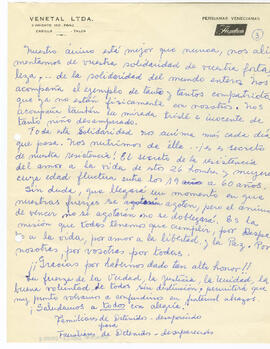 VENETAL LTDA.
PERSIANAS VENECIANAS
CASILLA TALCA
3
Nuestro ánimo está mejor que nunca, nos ali
mentamos de vuestra solidaridad de vuestra forta
leza,.. de la solidaridad del mundo entero. Nos
acompaña el ejemplo de tanto, tantos compatriotas
que ya no están físicamente con nosotros. Nos
acompaña también la mirada triste e inocente de
tanto, niño desamparado.
Toda esta Solidaridad nos anima más cada día
que pasa. Nos nutrimos de ella ..! es el secreto
de nuestra resistencia! El secreto de la resistencia
del amor a la vida de stos 26 hombres y mujeres
cuya edad fluctúa entre los 19 a 60 años.
Sin duda, que llegará un momento en que
nuestras fuerzas se agoten, pero el ánimo
de vencer no se agotará no se doblegará. Es la
misión que todos tenemos que cumplir, por
a la vida, por amor a la libertad, y la Paz. Por
nosotros por vosotros por todos.
¡¡Gracias por habernos dado tan alto honor!!
La fuerza de la Verdad, la Justicia, la Unidad, la
buena voluntad, de todos sin distinción, permitirá que
muy pronto volvamos a confundirnos en fraternal abrazos.
¡Saludamos a todos con alegría!
Familiares de Detenidos - desaparecidos
para
Familiares de Detenidos - desaparecidos